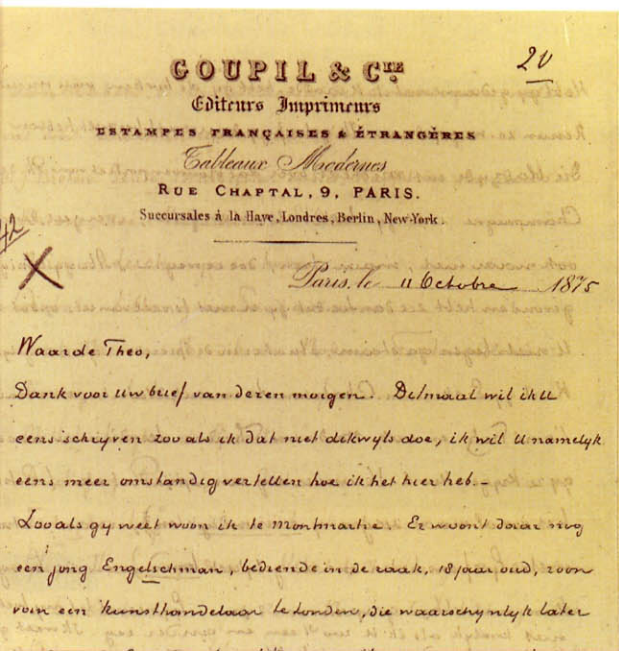 20
GOUPIL & CIE
Editeurs Imprimeurs
ESTAMPES FRANÇAISES & ÉTRANGÈRES
Tableaux Modernes
RUE CHAPTAL, 9, PARIS.
Succursales à la Haye, Londres, Berlin, New-York.
42
X
Paris, le 11 Octobre 1875
Waarde Theo,
Dank voor uw brief van dezen morgen. Ditmaal wil ik U
eens schrijven zooals ik dat niet dikwyls doe, ik wil U namelyk
eens meer omstandig vertellen hoe ik het hier heb. –
Zooals gy weet woon ik te Montmartre. Er woont daar nog
een jong Engelschman, bediende in de zaak, 18 jaar oud, zoon
van een kunsthandelaar te Londen, die waarschynlyk later